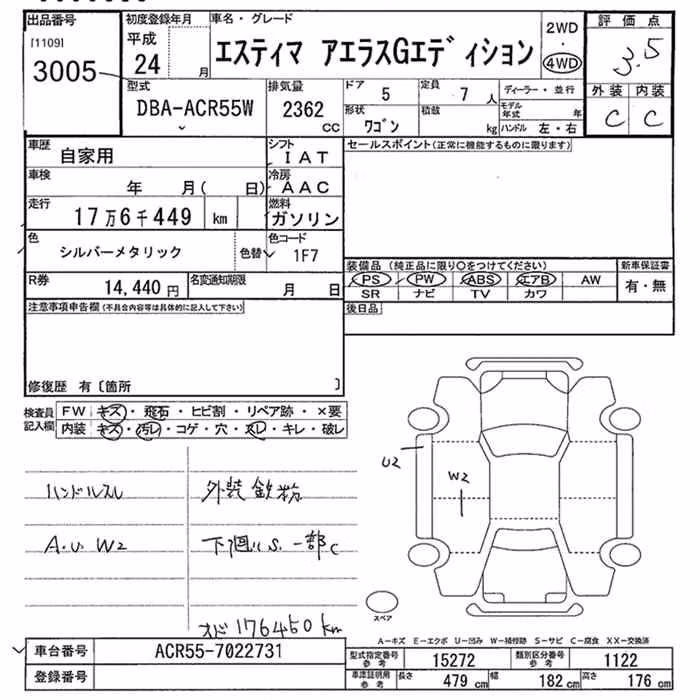 出品番号
[1109]
3005
初度登録年月
平成
24 月
車名・グレード
エスティマ アエラスGエディション
2WD
・
4WD
評価点
3.5
外装 内装
C C
型式
DBA-ACR55W
排気量
2362
CC
ドア
5
定員
7 人
形状
ワゴン
積載
kg
ディーラー・並行
モデル年式 年
ハンドル 左・右
車歴
自家用
シフト
IAT
車検
年 月( 日)
冷房
AAC
走行
17万6千449 km
燃料
ガソリン
色
シルバーメタリック
色替
色コード
1F7
R券
14,440 円
名変通知期限
月 日
セールスポイント(正常に機能するものに限ります)
装備品 (純正品に限り○をつけてください)
PS PW ABS エアB AW
SR ナビ TV カワ
新車保証書
有・無
後日品
注意事項申告欄(不具合内容等は具体的に記入して下さい)
修復歴 有〔箇所 〕
検査員記入欄
FW キズ・飛石・ヒビ割・リペア跡・×要
内装 キズ・汚レ・コゲ・穴・スレ・キレ・破レ
ハンドルスレ
外装 鉄粉
A.U W2
下廻り S.一部C
オド 176450 km
U2
W2
スペア
A−キズ E−エクボ U−凹み W−補修跡 S−サビ C−腐食 XX−交換済
車台番号
ACR55-7022731
登録番号
型式指定番号 参考
15272
類別区分番号 参考
1122
車庫証明用 参考
長さ 479 cm
幅 182 cm
高さ 176 cm